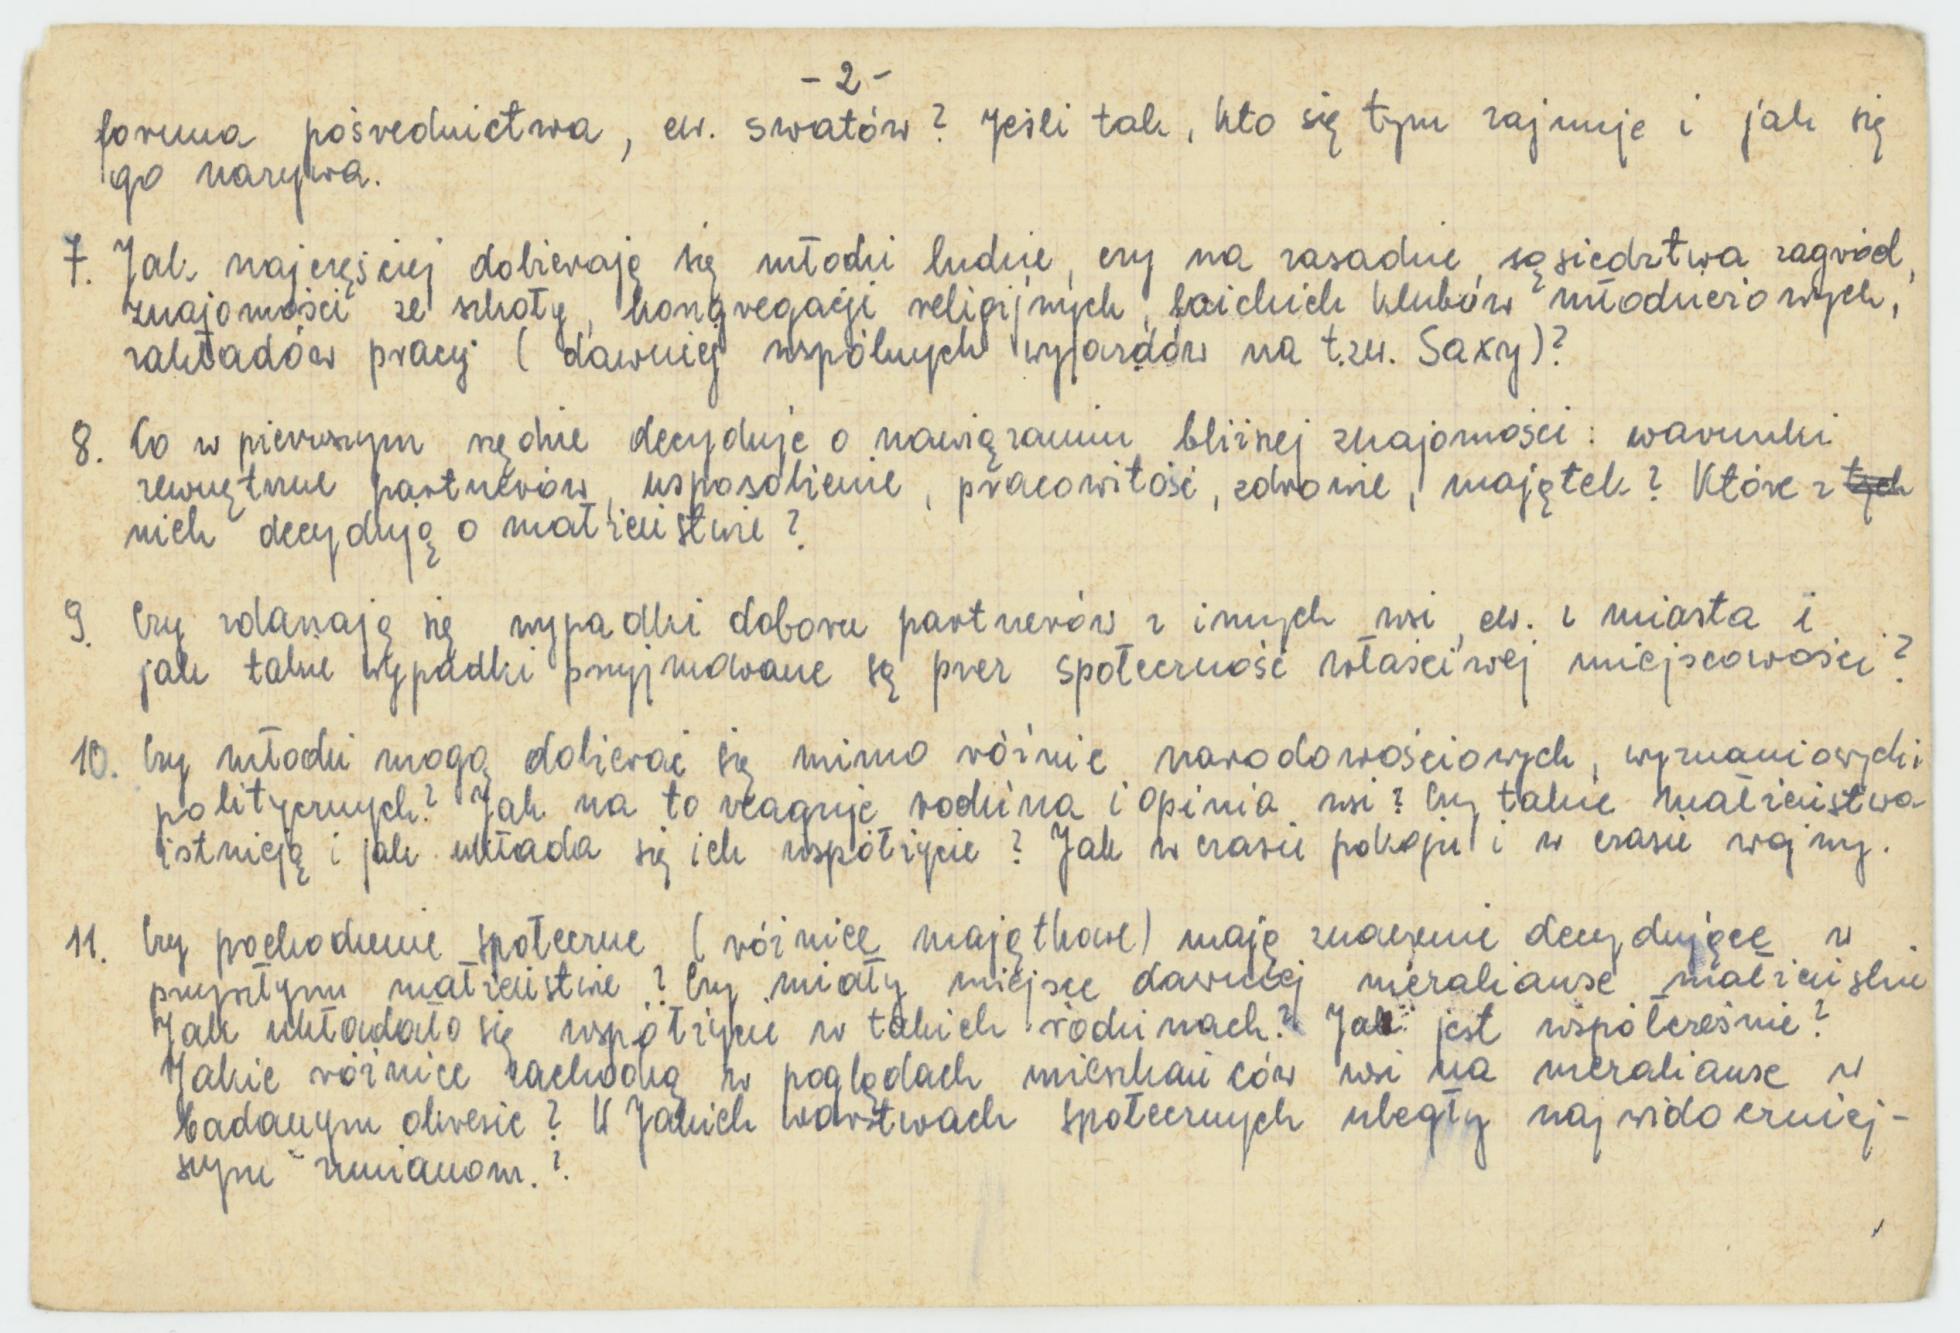 - 2 -
forma pośrednictwa, ew. swatów? Jeśli tak, kto się tym zajmuje i jak się
go nazywa.
7. Jak najczęściej dobierają się młodzi ludzie, czy na zasadzie sąsiedztwa zagród,
znajomości ze szkoły, kongregacji religijnych, świeckich klubów młodzieżowych,
zakładów pracy (dawniej wspólnych wyjazdów na t.zw. Saxy)?
8. Co w pierwszym rzędzie decyduje o nawiązaniu bliższej znajomości: warunki
zewnętrzne partnerów, usposobienie, pracowitość, zdrowie, majątek? Które z tych
nich decydują o małżeństwie?
9. Czy zdarzają się wypadki doboru partnerów z innych wsi, ew. z miasta i
jak takie wypadki przyjmowane są przez społeczność właściwej miejscowości?
10. Czy młodzi mogą dobierać się mimo różnic narodowościowych, wyznaniowych i
politycznych? Jak na to reaguje rodzina i opinia wsi? Czy takie małżeństwa
istnieją i jak układa się ich współżycie? Jak w czasie pokoju i w czasie wojny.
11. Czy pochodzenie społeczne (różnice majątkowe) mają znaczenie decydujące w
przyszłym małżeństwie? Czy miały miejsce dawniej mezalianse małżeńskie
Jak układało się współżycie w takich rodzinach? Jak jest współcześnie?
Jakie różnice zachodzą w poglądach mieszkańców wsi na mezalianse w
badanym okresie? W Jakich warstwach społecznych uległy najwidoczniej-
szym zmianom.?